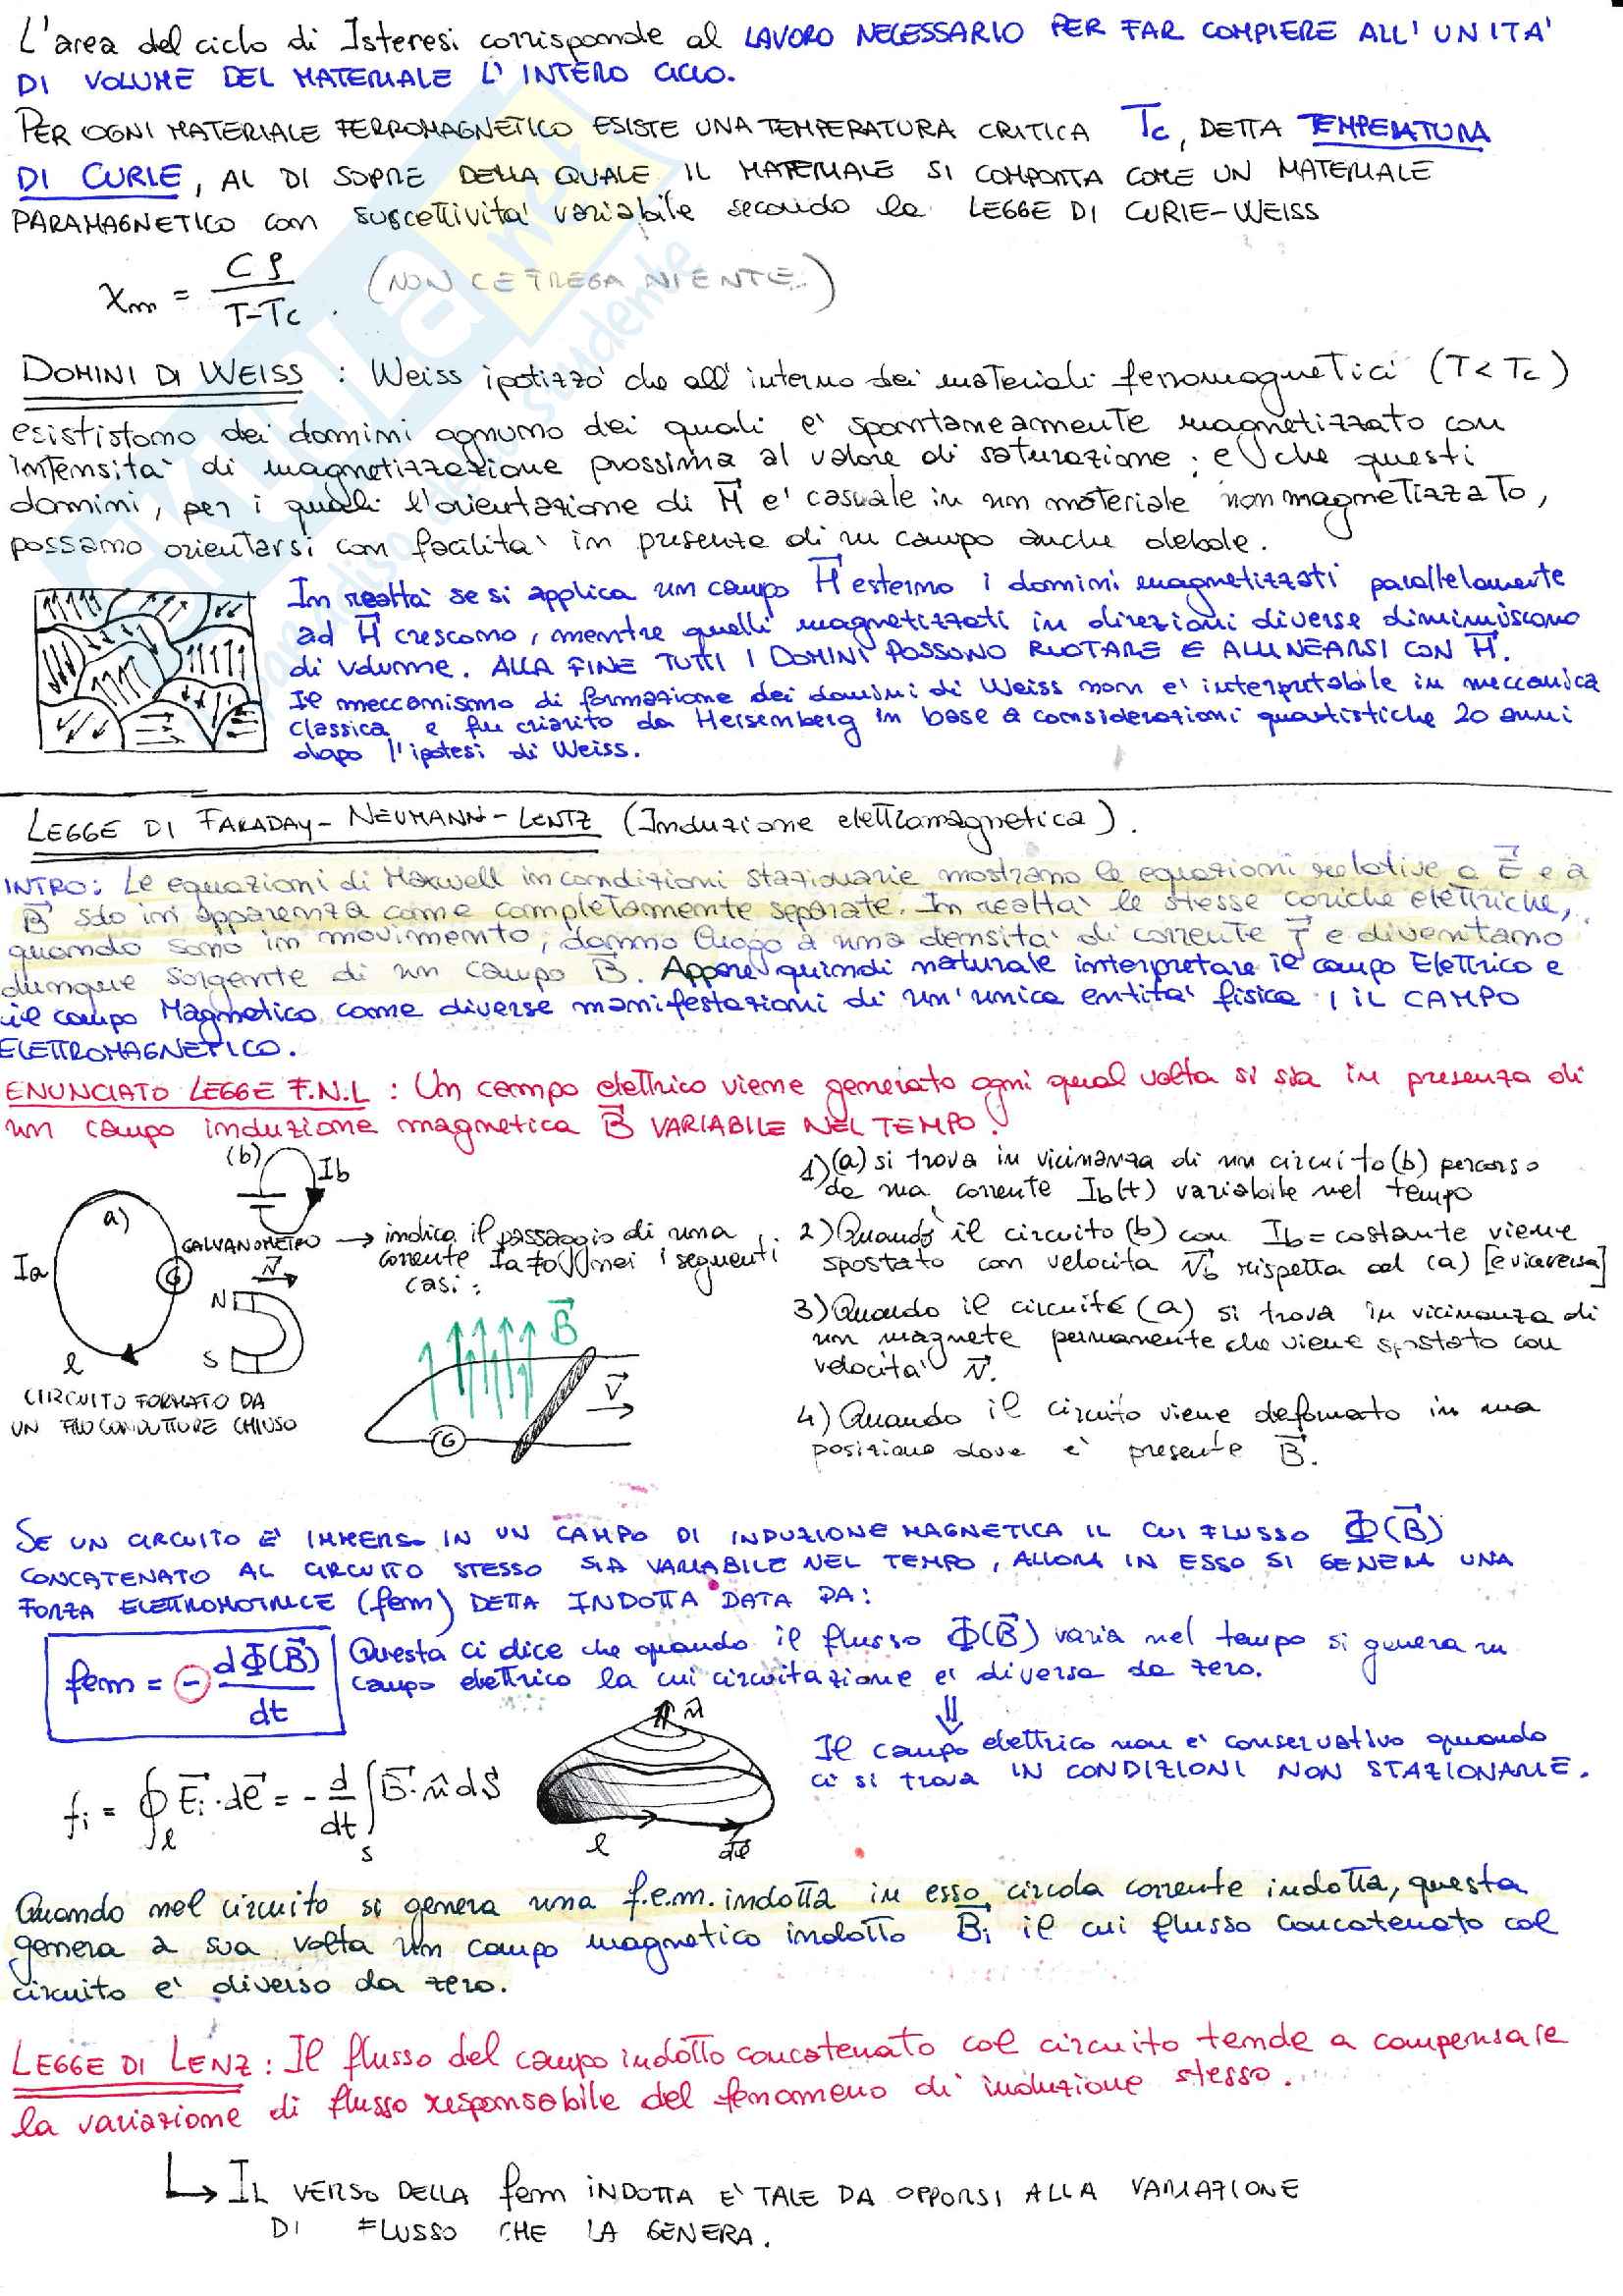 L'area del ciclo di Isteresi corrisponde al LAVORO NECESSARIO PER FAR COMPIERE ALL'UNITA'
DI VOLUME DEL MATERIALE L'INTERO CICLO.
PER OGNI MATERIALE FERROMAGNETICO ESISTE UNA TEMPERATURA CRITICA Tc, DETTA TEMPERATURA
DI CURIE, AL DI SOPRA DELLA QUALE IL MATERIALE SI COMPORTA COME UN MATERIALE
PARAMAGNETICO con suscettività variabile secondo la LEGGE DI CURIE-WEISS
χm = Cρ / (T-Tc) . (NON CE FREGA NIENTE..)
DOMINI DI WEISS : Weiss ipotizzò che all'interno dei materiali ferromagnetici (T< Tc)
esististono dei domini ognuno dei quali è spontaneamente magnetizzato con
intensità di magnetizzazione prossima al valore di saturazione; e che questi
domini, per i quali l'orientazione di M è casuale in un materiale non magnetizzato,
possano orientarsi con facilità in presenza di un campo anche debole.
In realtà se si applica un campo H esterno i domini magnetizzati parallelamente
ad H crescono, mentre quelli magnetizzati in direzioni diverse diminuiscono
di volume. ALLA FINE TUTTI I DOMINI POSSONO RUOTARE E ALLINEARSI CON H.
Il meccanismo di formazione dei domini di Weiss non è interpretabile in meccanica
classica e fu chiarito da Heisemberg in base a considerazioni quantistiche 20 anni
dopo l'ipotesi di Weiss.
LEGGE DI FARADAY-NEUMANN-LENTZ (Induzione elettromagnetica).
INTRO: Le equazioni di Maxwell in condizioni stazionarie mostrano le equazioni relative a E e a
B solo in apparenza come completamente separate. In realtà le stesse cariche elettriche,
quando sono in movimento, danno luogo a una densità di corrente J e diventano
dunque sorgente di un campo B. Appare quindi naturale interpretare il campo Elettrico e
il campo Magnetico come diverse manifestazioni di un'unica entità fisica, IL CAMPO
ELETTROMAGNETICO.
ENUNCIATO LEGGE F.N.L : Un campo elettrico viene generato ogni qual volta si sia in presenza di
un campo induzione magnetica B VARIABILE NEL TEMPO.
(b) Ib
a)
Ia
GALVANOMETRO → indica il passaggio di una
corrente Ia≠0 nei seguenti
casi:
G
N
S
v
l
CIRCUITO FORMATO DA
UN FILO CONDUTTORE CHIUSO
B
V
G
1) (a) si trova in vicinanza di un circuito (b) percorso
da una corrente Ib(t) variabile nel tempo
2) Quando il circuito (b) con Ib = costante viene
spostato con velocità vb rispetto ad (a) [e viceversa]
3) Quando il circuito (a) si trova in vicinanza di
un magnete permanente che viene spostato con
velocità v.
4) Quando il circuito viene deformato in una
posizione dove è presente B.
SE UN CIRCUITO E' IMMERSO IN UN CAMPO DI INDUZIONE MAGNETICA IL CUI FLUSSO Φ(B)
CONCATENATO AL CIRCUITO STESSO SIA VARIABILE NEL TEMPO, ALLORA IN ESSO SI GENERA UNA
FORZA ELETTROMOTRICE (fem) DETTA INDOTTA DATA DA:
fem = - dΦ(B) / dt
Questa ci dice che quando il flusso Φ(B) varia nel tempo si genera un
campo elettrico la cui circuitazione è diversa da zero.
⇓
Il campo elettrico non è conservativo quando
ci si trova IN CONDIZIONI NON STAZIONARIE.
fi = ∮l Ei · dl = - d/dt ∫s B · n̂ dS
n̂
l
dl
Quando nel circuito si genera una f.e.m. indotta in esso circola corrente indotta, questa
genera a sua volta un campo magnetico indotto Bi il cui flusso concatenato col
circuito è diverso da zero.
LEGGE DI LENZ : Il flusso del campo indotto concatenato col circuito tende a compensare
la variazione di flusso responsabile del fenomeno di induzione stesso.
↳ IL VERSO DELLA fem INDOTTA E' TALE DA OPPORSI ALLA VARIAZIONE
DI FLUSSO CHE LA GENERA.